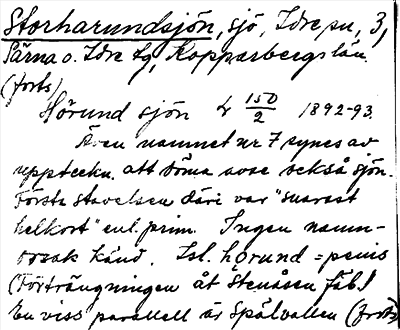 Storharundsjön, sjö, Idre sn, 3,
Särna o. Idre tg, Kopparbergs län.
(forts)
Hörund sjön 150/2 1892-93.
Även namnet nr 7 synes av
uppteckn. att döma avse också sjön.
Första stavelsen däri var "snarast
helkort" enl. prim. Ingen namn-
orsak känd. Isl. hǫrund = penis
(Förträngningen åt Stenåsen fäb.)
En viss parallell är Spälvallen (forts)